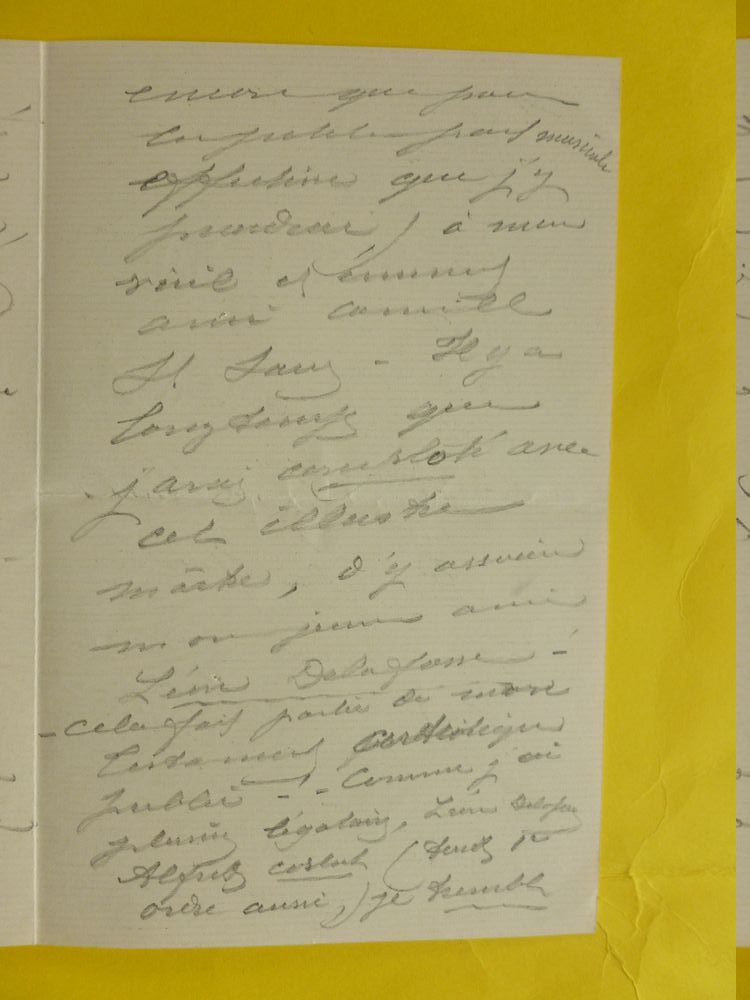 encore que pour
la petite part musicale
effective que j'y
prendrai) à mon
vieil et éminent
ami Camille
St Saens - Il y a
longtemps que
j'avais comploté avec
cet illustre
maître, d'y associer
mon jeune ami
Léon Delafosse -
- cela fait partie de mon
testament artistique
publié - - Comme j'ai
plusieurs légataires, Léon Delafosse
Alfred Cortot (tous 1er
ordre aussi,) je tremble